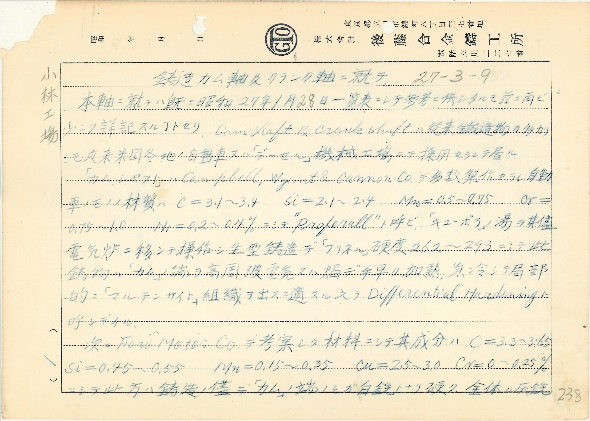 昭和 年 月 日
株式会社 後藤合金鑄工所
小林工場
鋳造カム軸及クランク軸ニ就テ 27-3-9
本軸ニ就テハ既ニ昭和27年1月28日一覧表ニシテ参考ニ供シタルモ茲ニ再ビ
詳記スルコトセリ、Cam shaft & crank shaft ハ従来鍛造物
モ近来米国各地ノ自動車又ハ「デーゼル」機械工場ニテ採用
Campbell, Wyant & Cannon Co. デ多数製作セラレ自動
車 材質ハ C=3.1~3.4 Si=2.1~2.4 Mn=0.5~0.75 Cr=
0.75~1.0 Ni=0.2~0.4% ニシテ "Proferall" ト呼ビ、「キューポラ」湯ヲ其儘
電気炉ニ移シテ操作シ生型鋳造デ「ブリネル」硬度 262~293 ニシテ此
鋳物ハ「カム」端ヲ高周波電気又ハ焔デ 加熱、急冷シテ局部
的ニ「マルテンサイト」組織ヲ出スニ適スル之ヲ Differential Hardening ト
呼ンデイル、
次ハ Ford Motor Co. デ考案シタ材料ニシテ其成分ハ C=3.3~3.65
Si=0.45~0.55 Mn=0.15~0.35 Cu=2.5~3.0 Cr=0~0.25%
ニシテ此方ハ鋳造ノ儘デ「カム」ノ端ノミガ白銑トナリ硬ク、全体ハ灰銑
(1)
238